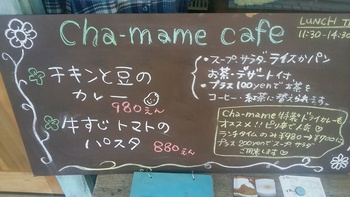 Cha-mame cafe
LUNCH T
11:30-14:30
チキンと豆の
カレー
980えん
牛すじトマトの
パスタ 880えん
・スープ、サラダ、ライスかパン
お茶・デザート付
・プラス100yenでお茶を
コーヒー・紅茶に替えられます。
Cha-mame特製ドライカレーも
オススメ!ピリ辛で人気♡
ランチタイムのみ¥980→¥700に
プラス200yenでスープ サラダ
ご用意します♡